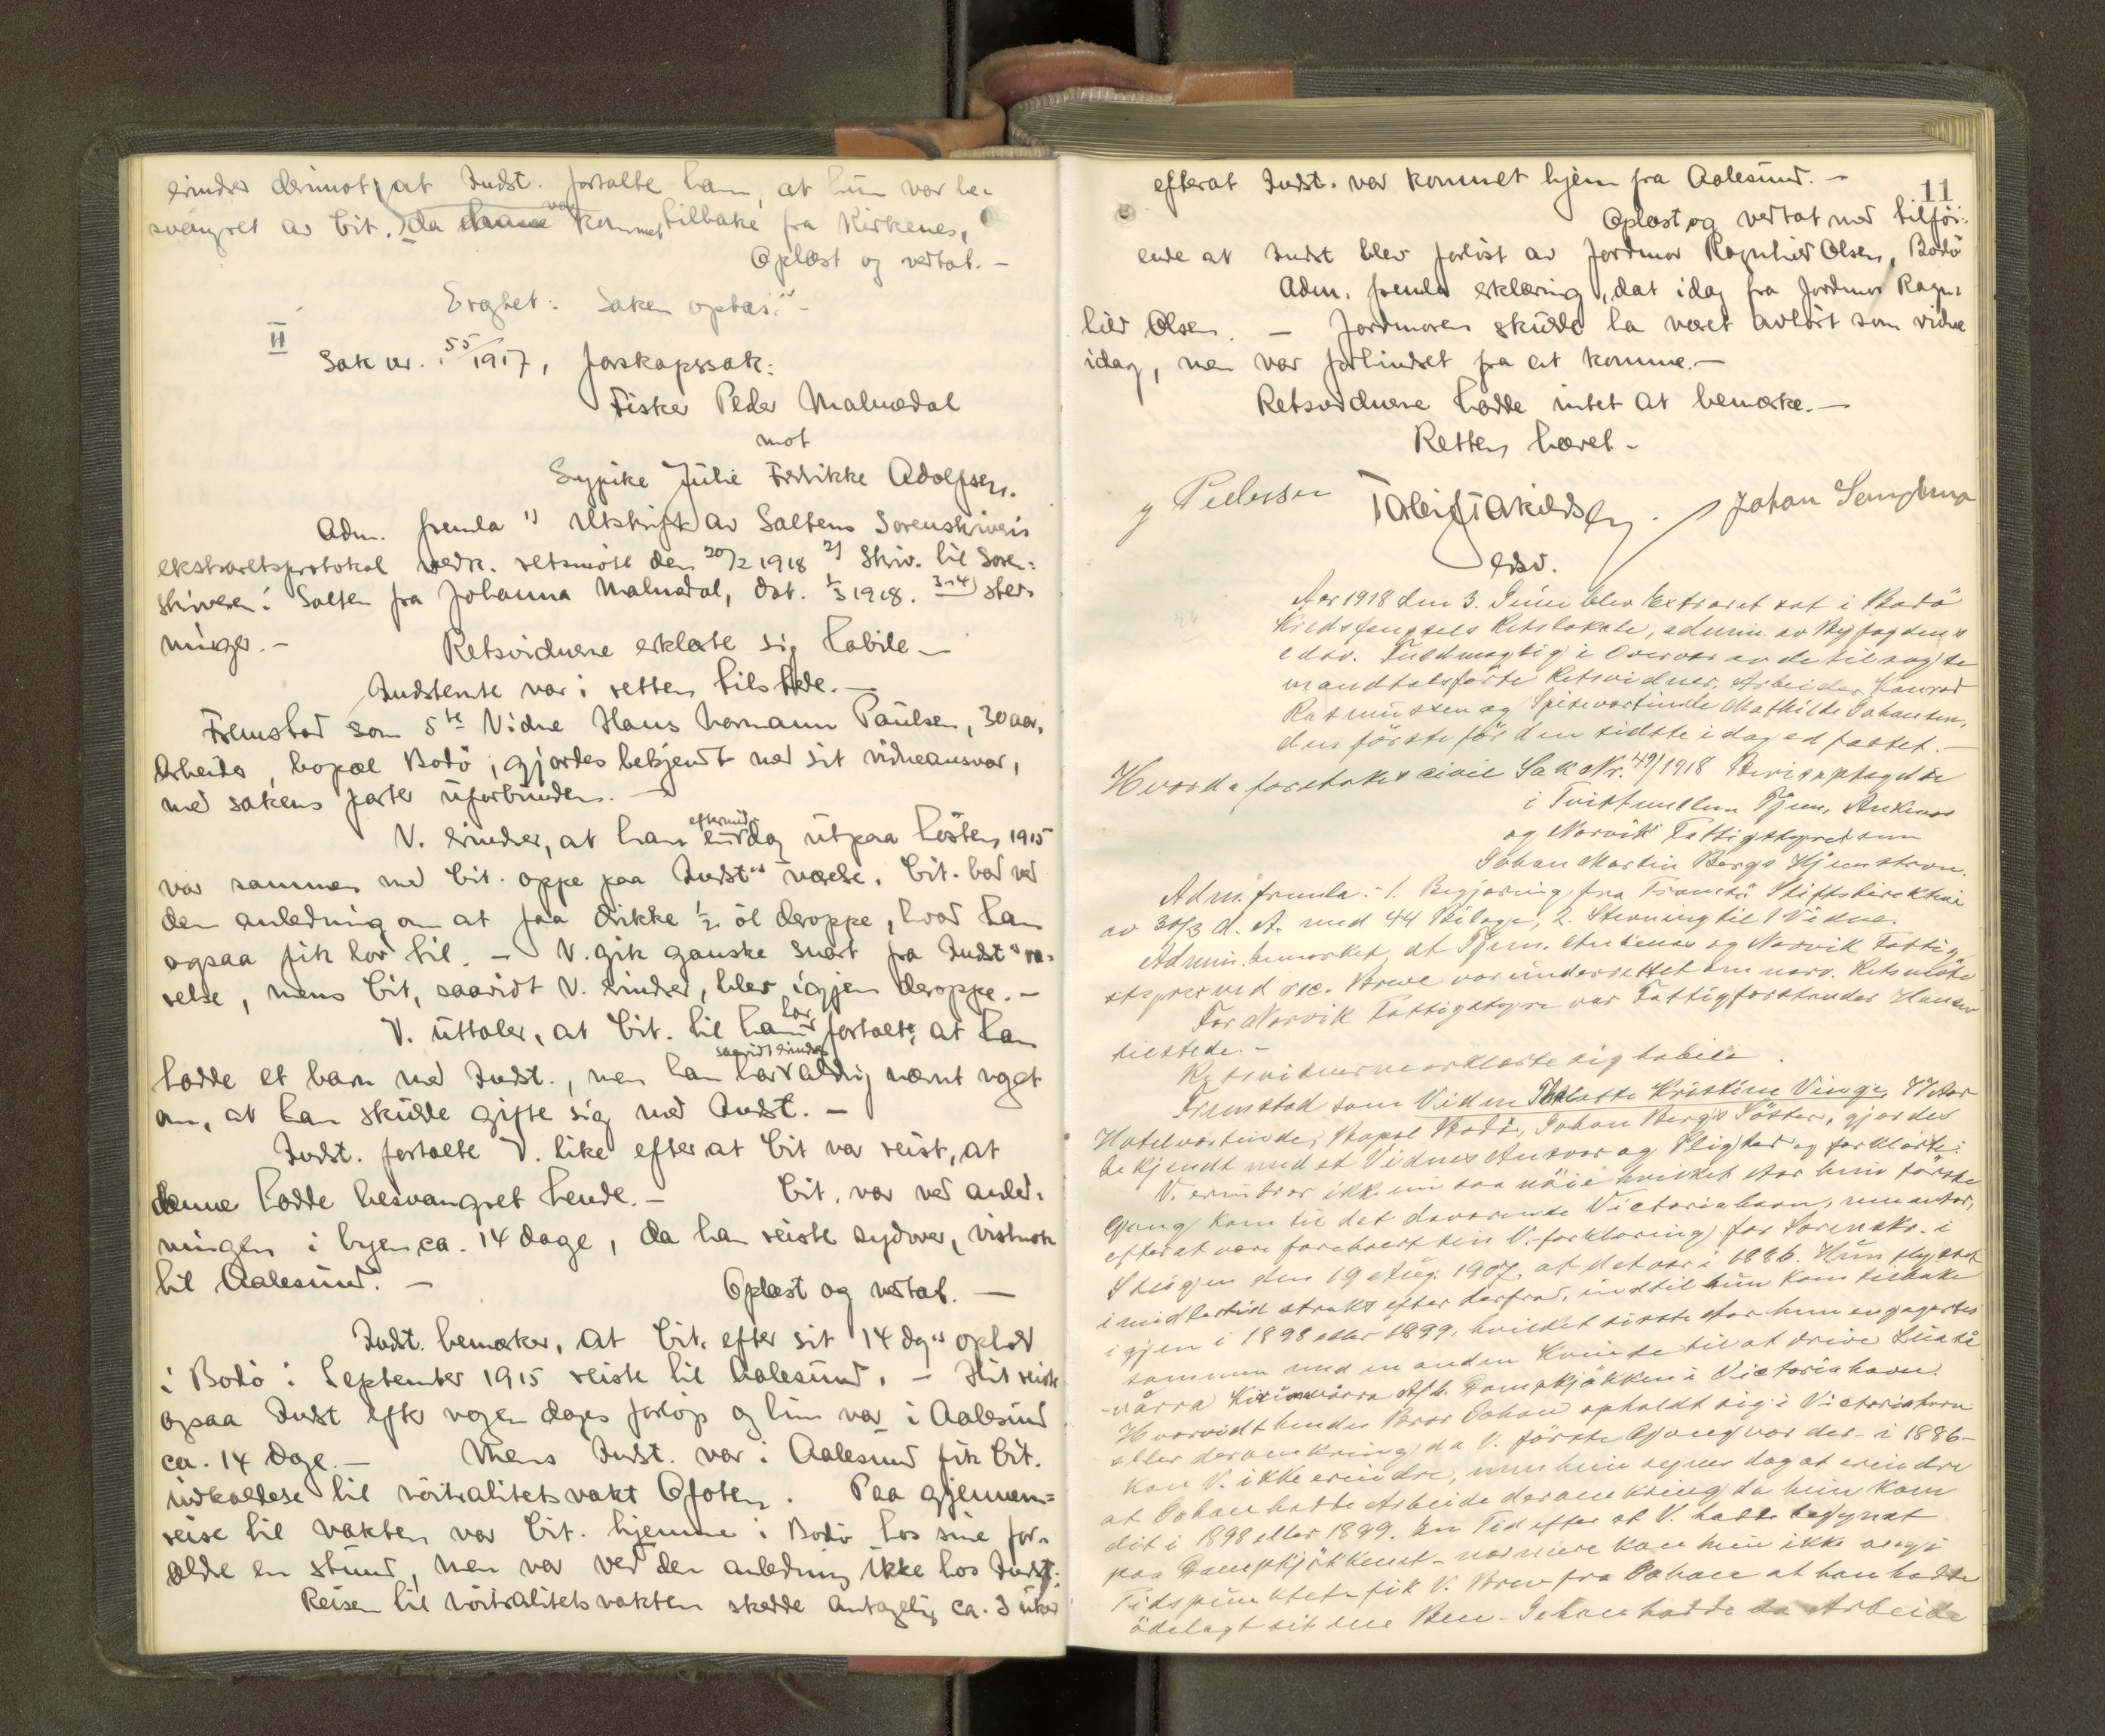 erindrer derimot, at Indst. fortalte ham, at hun var be-
svangret av Cit. da denne var kommet tilbake fra Kirkenes.
Oplæst og vedtat. —
Eragtet: Saken optas. —
II
Sak nr. 55/1917, farskapssak:
Fisker Peder Malnædal
mot
Sypike Julie Fredrikke Adolfsen.
Adm. fremla 1) Utskrift av Saltens Sorenskriveris
ekstraretsprotokol vedr. retsmøte den 20/2 1918 2) Skriv. til Soren-
skriveren i Salten fra Johanna Malnædal, dat. 1/3 1918. 3-4) stev-
ninger. — Retsvidnene erklærte sig habile —
Indstevnte var i retten tilstede. —
Fremstod som 5te Vidne Hans Normann Paulsen, 30 aar,
Arbeider, bopæl Bodø, gjordes bekjendt med sit vidneansvar,
med sakens parter uforbunden. —
V. erindrer, at han en eftermiddag utpaa høsten 1915
var sammen med Cit. oppe paa Indst's værelse. Cit. bad ved
den anledning om at faa drikke 1/2 øl deroppe, hvad han
ogsaa fik lov til. — V. gik ganske snart fra Indst's væ-
relse, mens Cit, saavidt V. erindrer, blev igjen deroppe. —
V. uttaler, at Cit. til ham har fortalt, at han
hadde et barn med Indst., men han har saavidt erindres aldrig nævnt noget
om, at han skulde gifte sig med Indst. —
Indst. fortalte V. like efter at Cit var reist, at
denne hadde besvangret hende. — Cit. var ved anled-
ningen i byen ca. 14 dage, da han reiste sydover, vistnok
til Aalesund. — Oplæst og vedtat. —
Indst. bemerker, at Cit. efter sit 14 dg's ophold
i Bodø i September 1915 reiste til Aalesund. — Hit reiste
ogsaa Indst efter nogen dages forløp og hun var i Aalesund
ca. 14 dage. — Mens Indst. var i Aalesund fik Cit.
indkaldelse til nøitralitetsvakt Ofoten. Paa gjennem-
reise til vakten var Cit. hjemme i Bodø hos sine for-
ældre en stund, men var ved den anledning ikke hos Indst.
Reisen til nøitralitetsvakten skedde antagelig ca. 3 uker
11
efterat Indst. var kommet hjem fra Aalesund. —
Oplæst og vedtat med tilføi-
ende at Indst blev forløst av Jordmor Ragnhild Olsen, Bodø
Adm. fremla erklæring, dat idag fra Jordmor Ragn-
hild Olsen. — Jordmoren skulde ha været avhørt som vidne
idag, men var forhindret fra at komme. —
Retsvidnene hadde intet at bemerke. —
Retten hævet —
Pedersen
Johan
edsv.
Aar 1918 den 3. Juni blev Extraret sat i Bodø
Kredsfængsels Retslokale, admin. av Byfogdens
edsv. Fuldmægtig i Overvær av de tilsagte
mandtalsførte Retsvidner, Arbeider Konrad
Rasmussen og Spisevertinde Mathilde Johansen,
den første før den sidste idag edfæstet. —
Hvorda foretokes civil Sak Nr. 49/1918 Bevisoptagelse
i Tvist mellem Tjern, Ankenes
og Narvik Fattigstyrer om
Johan Martin Bergs Hjemstavn.
Adm. fremla: 1. Begjæring fra Tromsø Stiftsdirektion
av 30/3 d. A. med 44 Bilage, 2. Stevning til 1 Vidne.
Admin. bemerket, at Tjern, Ankenes og Narvik Fattig-
styrer ved rec. Breve var underrettet om nærv. Retsmøte
For Narvik Fattigstyre var Fattigforstander Hansen
tilstede. —
Retsvidnerne erklærte sig habile.
Fremstod som Vidne Kristine Vinge, Aar
Hotelvertinde, Bopæl Bodø, Johan Bergs Søster, gjordes
bekjendt med et Vidnes Ansvar og Pligter og forklarte:
V. erindrer ikke nu saa nøie hvilket Aar hun første
Gang kom til det daværende Victoriahavn, men antar,
efter at være foreholdt sin V. forklaring for Sorenskr. i
Steigen den 19 Aug. 1907, at det var i 1886. Hun flyttet
imidlertid straks efter derfra, indtil hun kom tilbake
igjen i 1898 eller 1899, hvilket sidste Aar hun engagertes
sammen med en anden Kvinde til at drive Luossa-
vaara Kirunavaara A/b. Dampkjøkken i Victoriahavn.
Hvorvidt hendes Bror Johan opholdt sig i Victoriahavn
eller deromkring da V. første Gang var der i 1886 —
kan V. ikke erindre, men hun synes dog at erindre
at Johan hadde Arbeide deromkring da hun kom
dit i 1898 eller 1899. En Tid efter at V. hadde begynt
paa Dampkjøkkenet — nærmere kan hun ikke angi
Tidspunktet — fik V. Brev fra Johan at han hadde
ødelagt sit ene Ben — Johan hadde da Arbeide